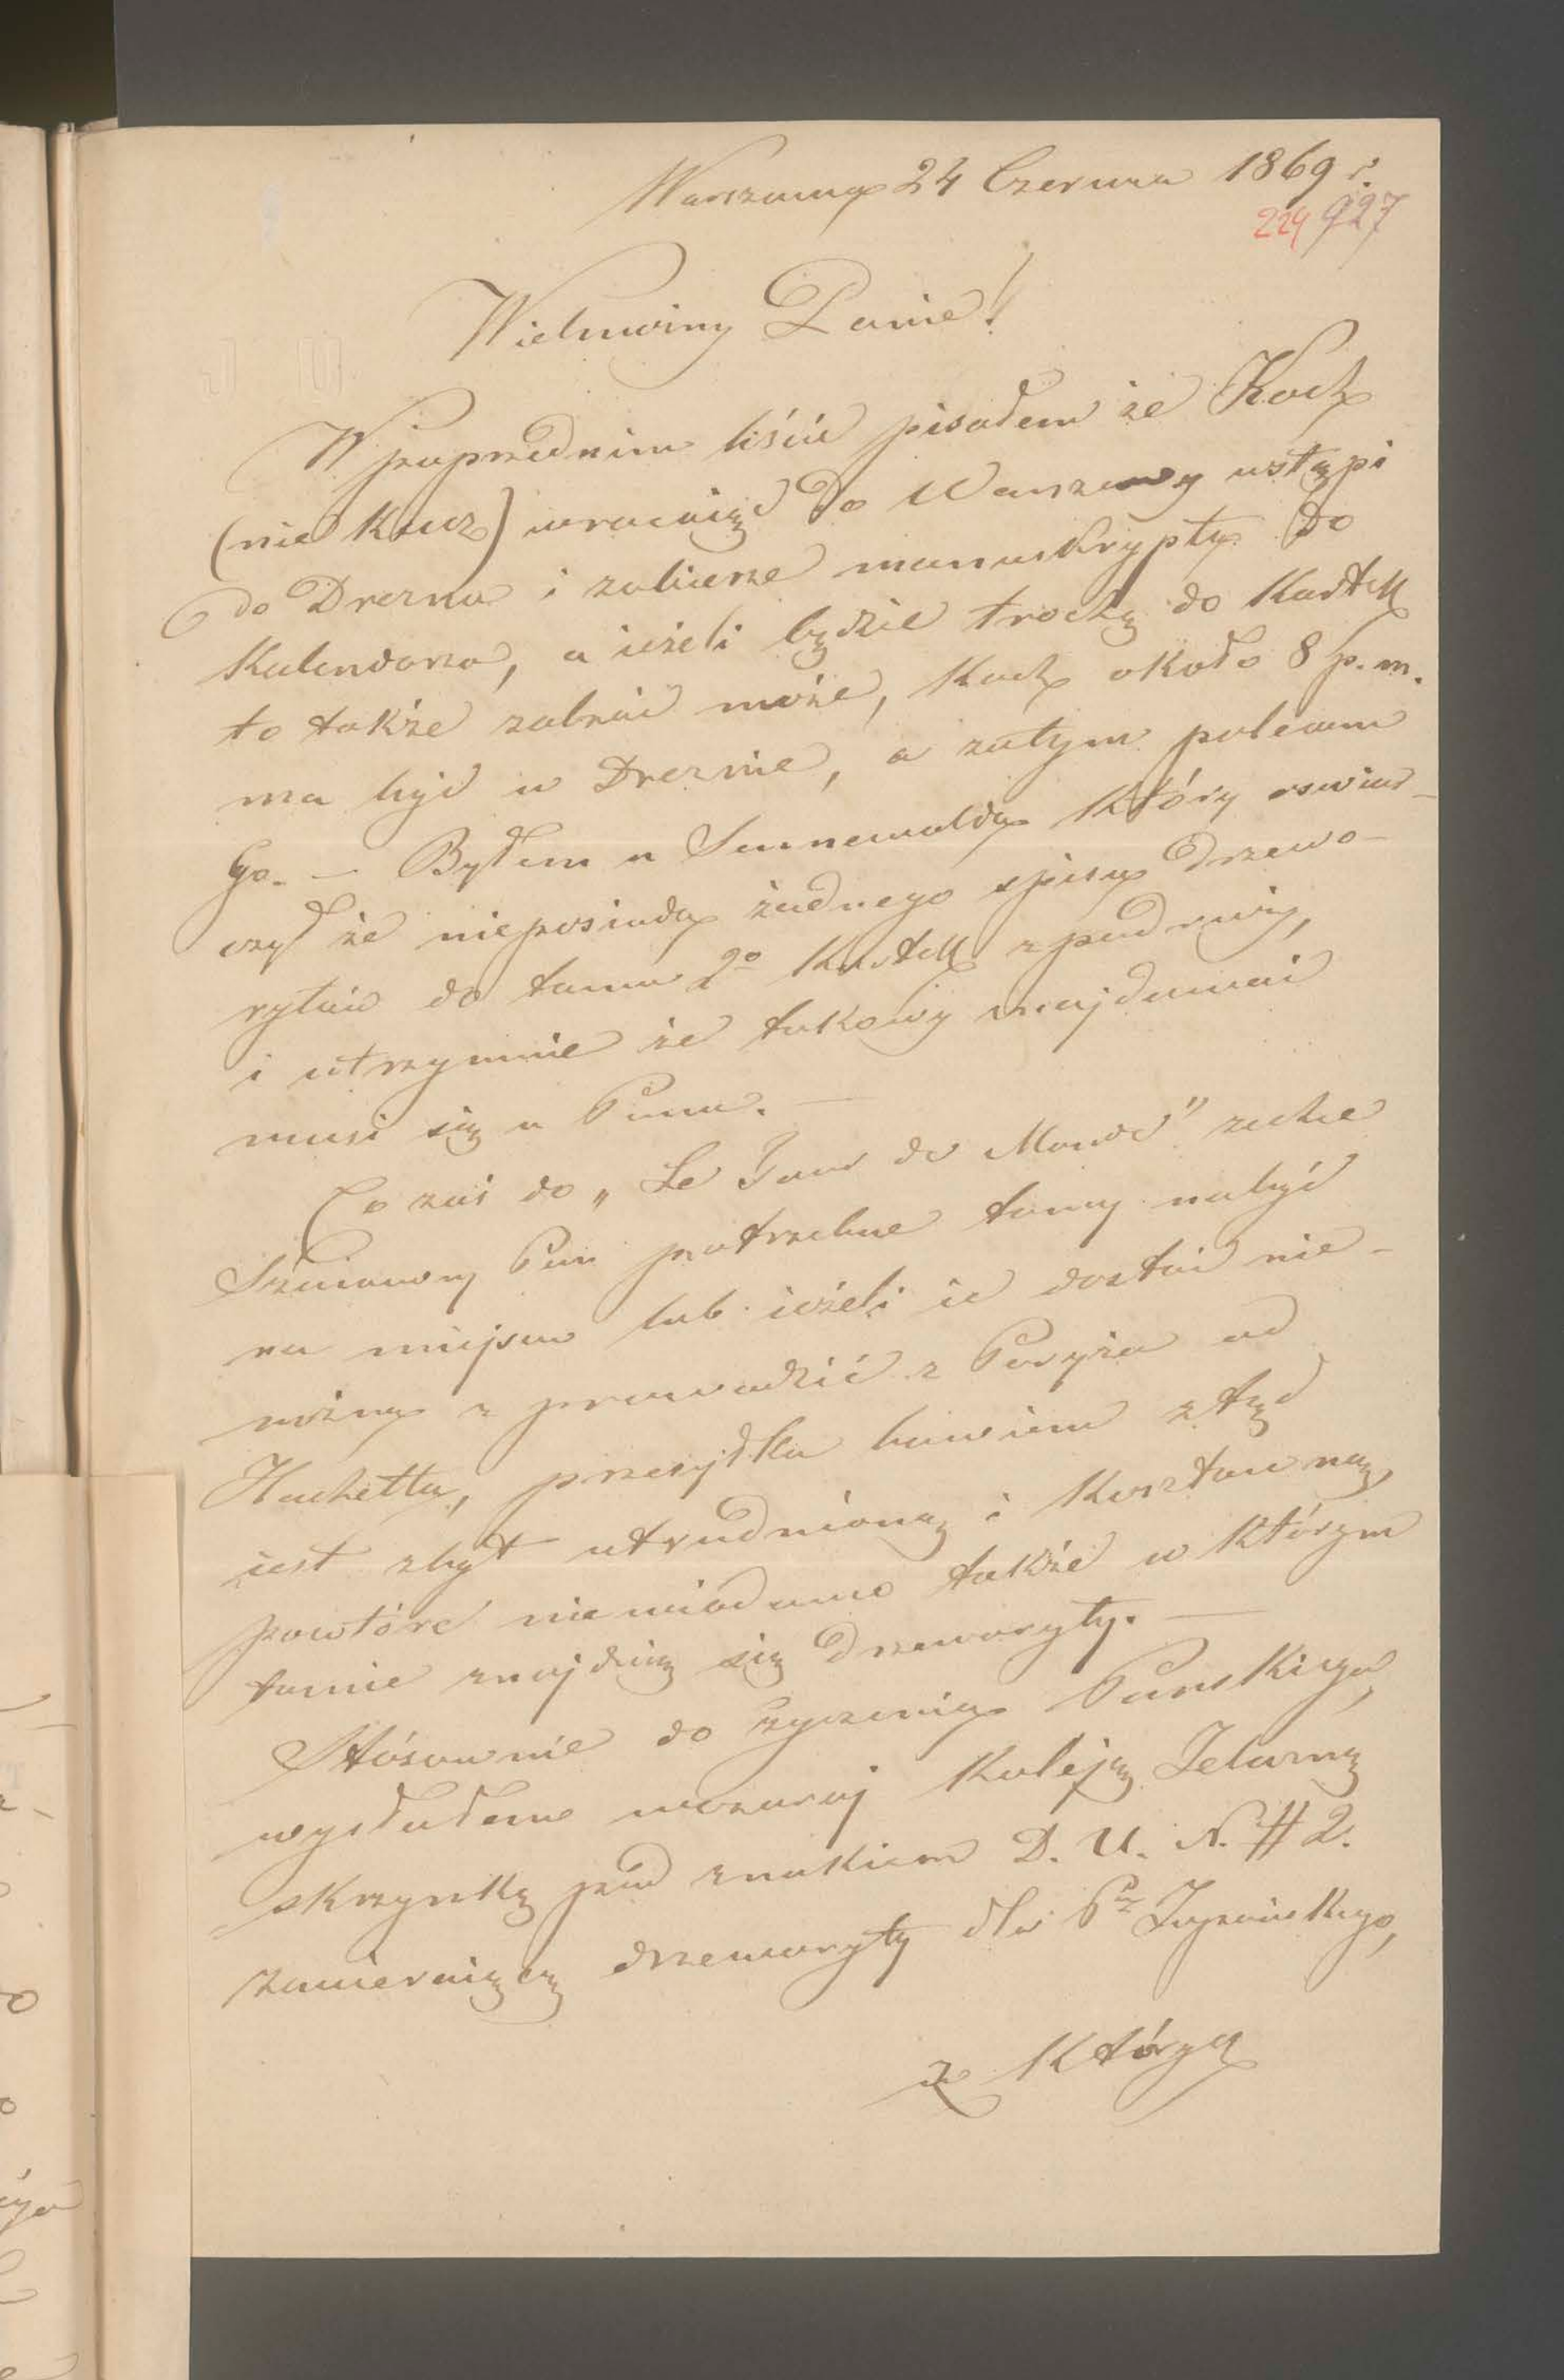 Warszawa 24 Czerwca 1869 r.
224 927
Wielmożny Panie!
W poprzednim liście pisałem że Koch
(nie Kucz) wracaiąc do Warszawy wstąpi
do Drezna i zabierze manuskrypta do
Kalendarza, a ieżeli będzie trochę do Kartek
to także zabrać może, Koch około 8 p. m.
ma być w Dreznie, a zatym polecam
Go. — Byłem u Sennewalda który oświad-
czył że nieposiada żadnego spisu drzewo-
rytów do tomu 2º Kartek z podróży,
i utrzymuie że takowy znajdować
musi się u Pana. —
Co zaś do „Le Tour du Monde" zechce
Szanowny Pan potrzebne tomy nabyć
na miejscu lub ieżeli ie dostać nie-
można sprowadzić z Paryża od
Hachetta, przesyłka bowiem ztąd
iest zbyt utrudnioną i kosztowną,
powtóre niewiadomo także w którym
tomie znajduią się drzeworyty. —
Stósownie do życzenia Pańskiego,
wysłałem wczoraj Koleją Żelazną
skrzynkę pod znakiem D. U. N. # 2.
zawieraiącą drzeworyty dla Pª
z których